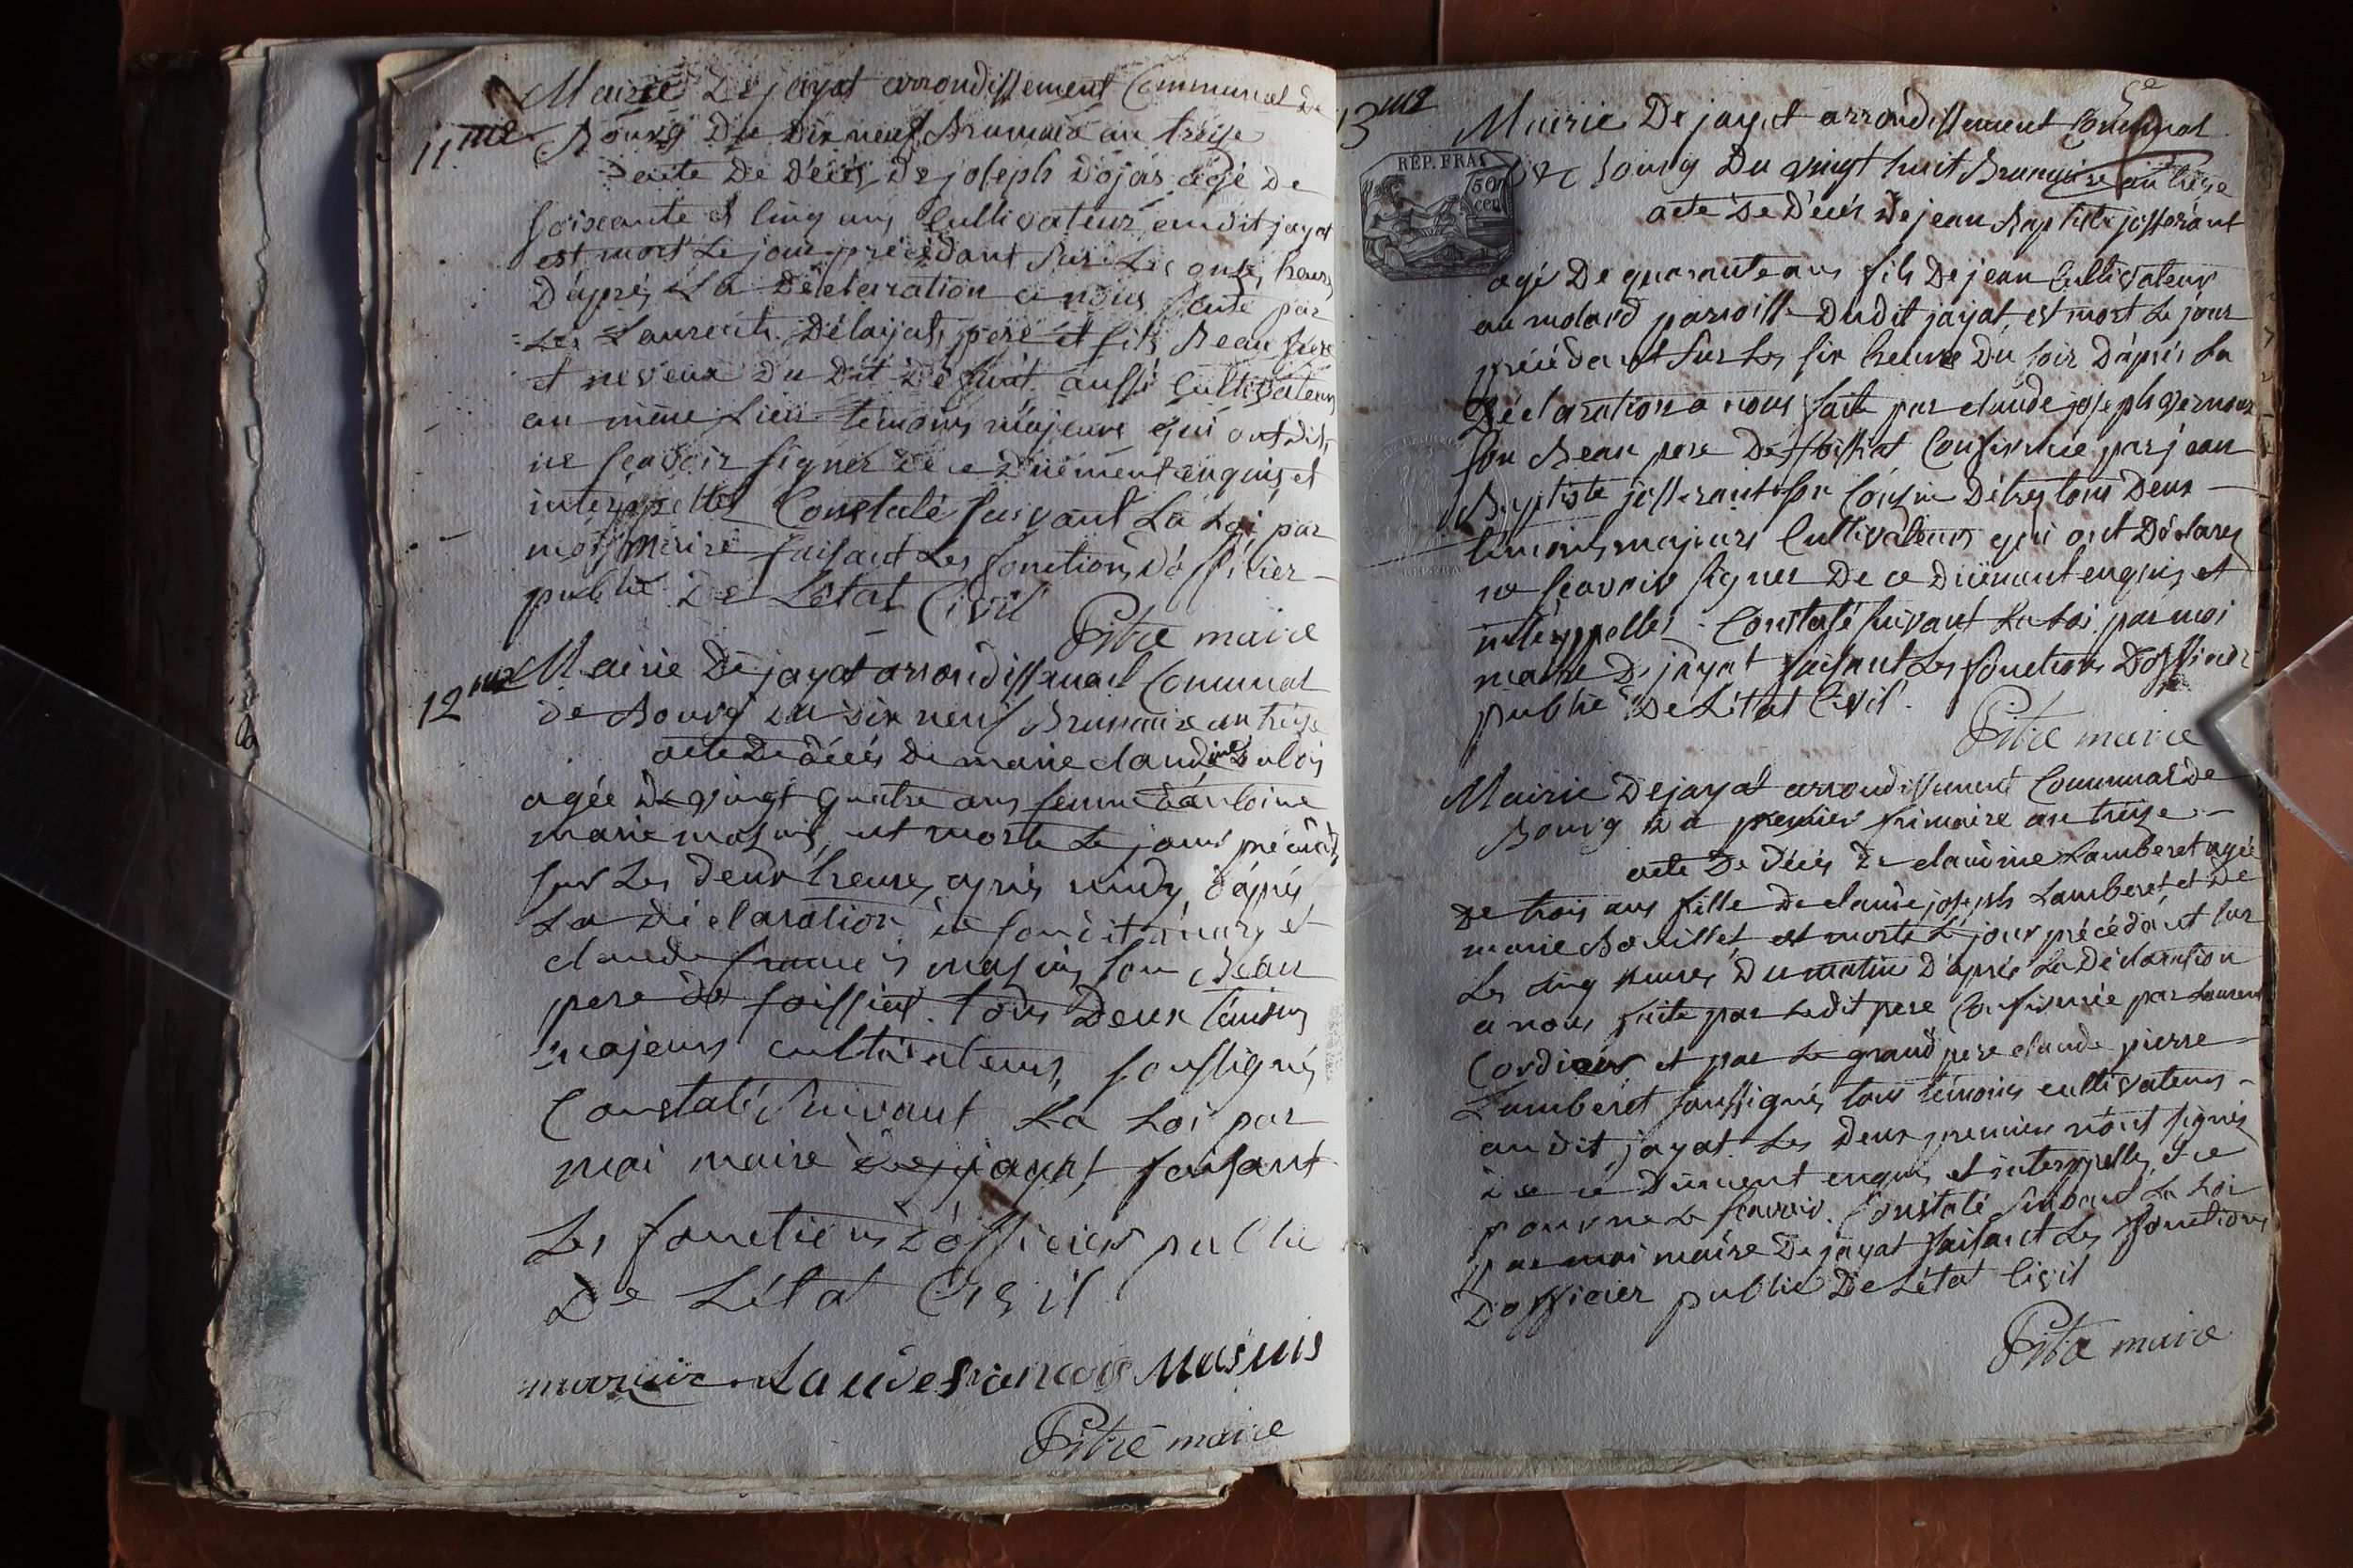 11me
Mairie De jayat arrondissement Communal de
Bourg Du dix neuf Brumaire an treize
acte De Décès De joseph Dojas agé De
soixante et cinq ans Cultivateur audit jayat
est mort Le jour précédant sur Les onze heures
D'après La Déclaration a nous faite par
Les Laurents Délayat pere et fils Beau frere
et neveux Du Dit Défunt aussi Cultivateurs
au même Lieu témoins majeurs qui ont dit
ne scavoir signer de ce Duëment enquis et
interppellés Constaté suivant La Loi par
moi maire faisant Les fonctions D'officier
public De L'état Civil
Pitre maire
12me
Mairie De jayat arrondissement Communal
de Bourg du dix neuf Brumaire an treize
acte De décès De marie claudine
agée De vingt quatre ans femme d'antoine
marie masuis, est morte Le jour précédt
sur Les deux heures après midy, d'après
La déclaration de sondit mary et
claude francois masuis son Beau
pere de foissiat. tous Deux témoins
majeurs cultivateurs, soussignés
Constaté suivant La Loi par
moi maire de jayat faisant
Les fonctions D'officier public
De L'état Civil
Laude francois Masuis
Pitre maire
13me
5e
Mairie De jayat arrondissement Communal
REP. FRA
50 cen
de Bourg Du vingt huit Brumaire an treize
acte De Décès De jean Baptiste josserant
agé De quarante ans fils De jean Cultivateur
au molard parroisse Dudit jayat, est mort Le jour
précédant sur Les six heures Du soir D'après La
Déclaration a nous faite par claude joseph
son Beau pere De foissiat Confirmée par jean
Baptiste josserant son Cousin tous Deux
témoins majeurs Cultivateurs qui ont Déclarés
ne scavoir signer De ce Duëment enquis et
interppellés. Constaté suivant La Loi par moi
maire De jayat faisant Les fonctions D'officier
public De L'état Civil.
Pitre maire
Mairie De jayat arrondissement Communal De
Bourg Du premier frimaire an treize
acte De Décès De claudine Lamberet agée
De trois ans fille De claude joseph Lamberet et De
marie Bouillet est morte Le jour précédant sur
Les cinq heures Du matin D'après La Déclaration
a nous faite par Ledit pere Confirmée par Laurent
Cordier et par Le grand pere claude pierre
Lamberet soussignés tous témoins cultivateurs
au dit jayat. Les Deux premiers n'ont signés
de ce Duëment enquis et interppellés, et ce
pour ne Le scavoir. Constaté suivant La Loi
par moi maire De jayat faisant Les fonctions
D'officier public De L'état Civil
Pitre maire